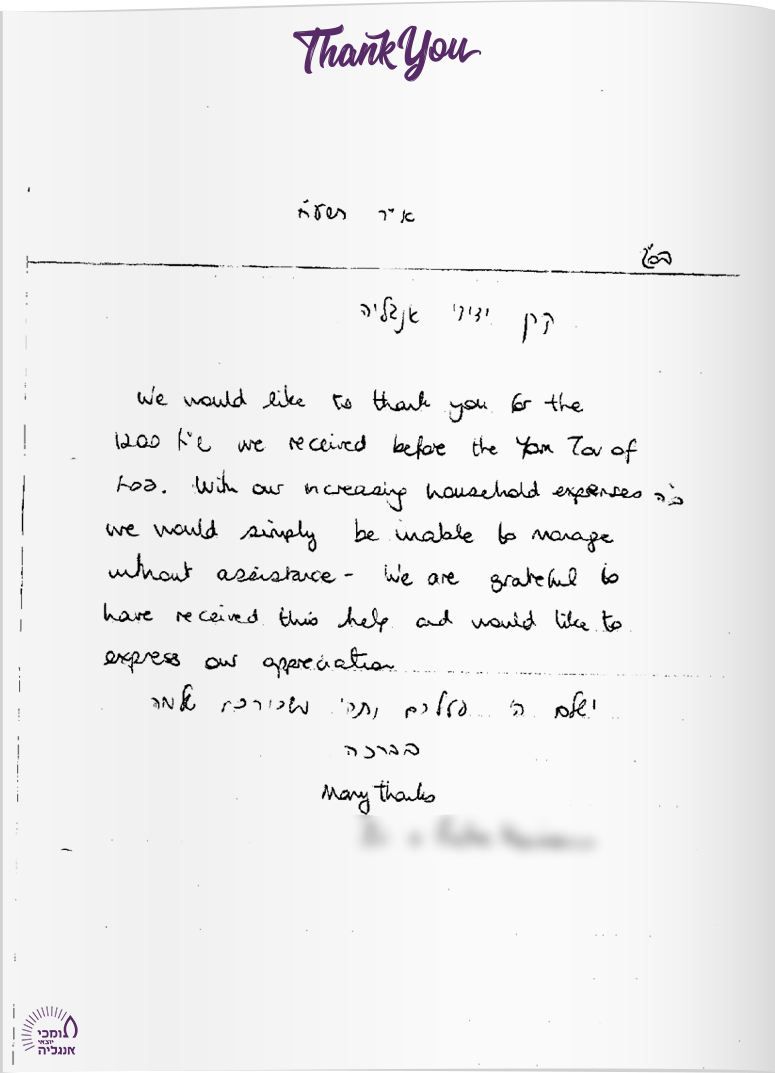 Thank You
בס"ד
קרן ידידי אנגליה
We would like to thank you for the
1200 ש"ח we received before the Yom Tov of
פסח. With our increasing household expenses ב"ה
we would simply be unable to manage
without assistance - We are grateful to
have received this help and would like to
express our appreciation
ישלם ה' פעליכם ותהי משכורתכם שלמה
בברכה
Many thanks
תומכי
יוצאי
אנגליה